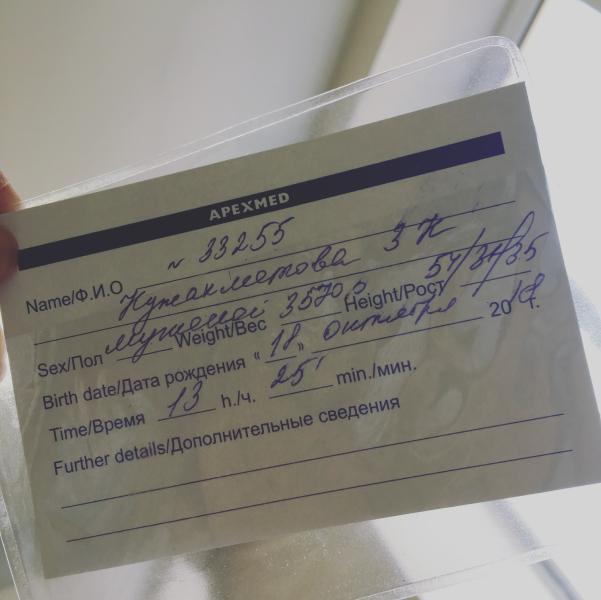 APEXMED
№ 33255
Name/Ф.И.О
Кужахметова З К
Sex/Пол мужской Weight/Вес 3570 Height/Рост 54/34/35
Birth date/Дата рождения « 18 » октября 2018 г.
Time/Время 13 h./ч. 25' min./мин.
Further details/Дополнительные сведения